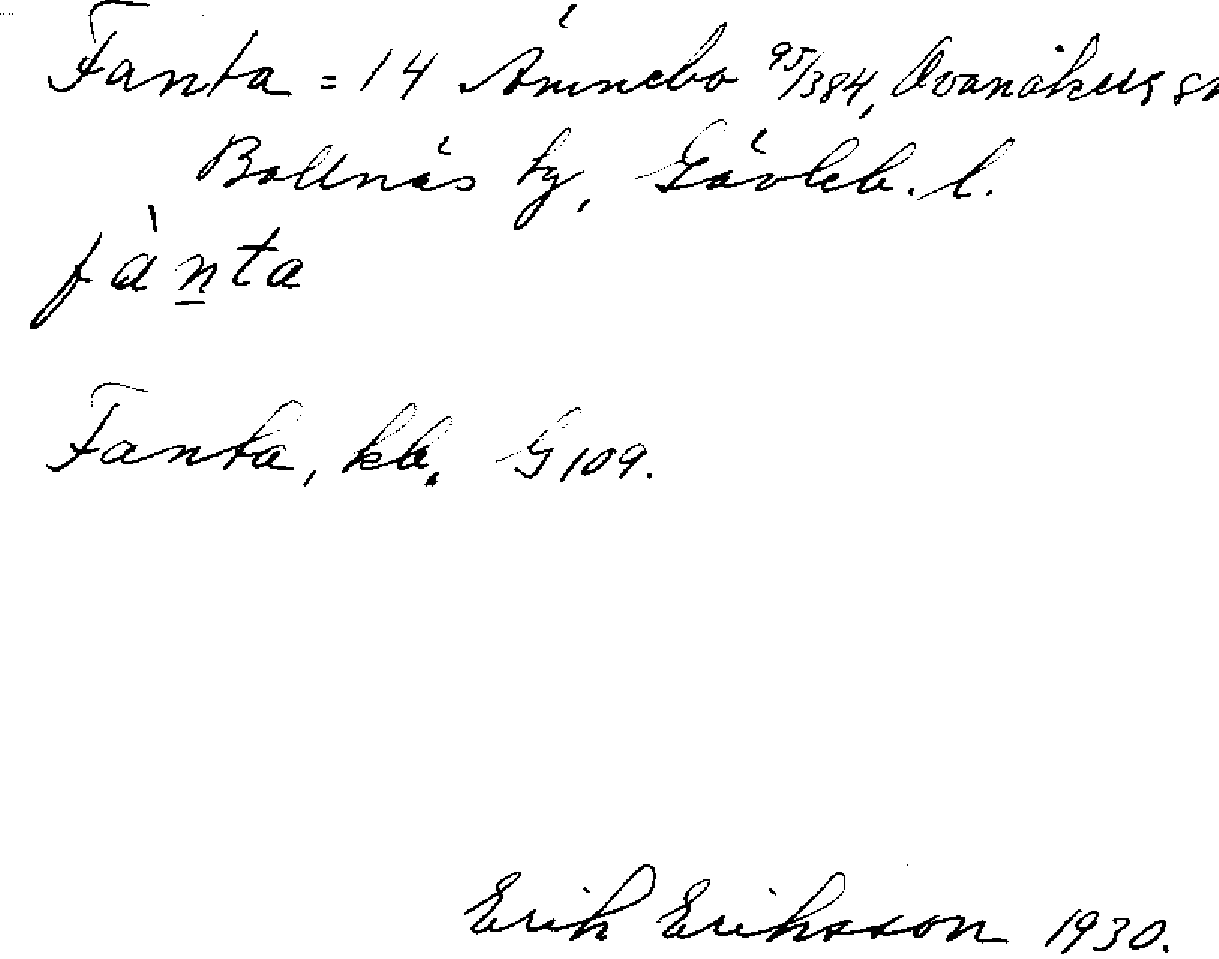 Fanta = 14 Ämnebo 95/384, Ovanåkers sn
Bollnäs tg, Gävleb. l.
fànta
Fanta, kb, G 109.
Erik Eriksson 1930.